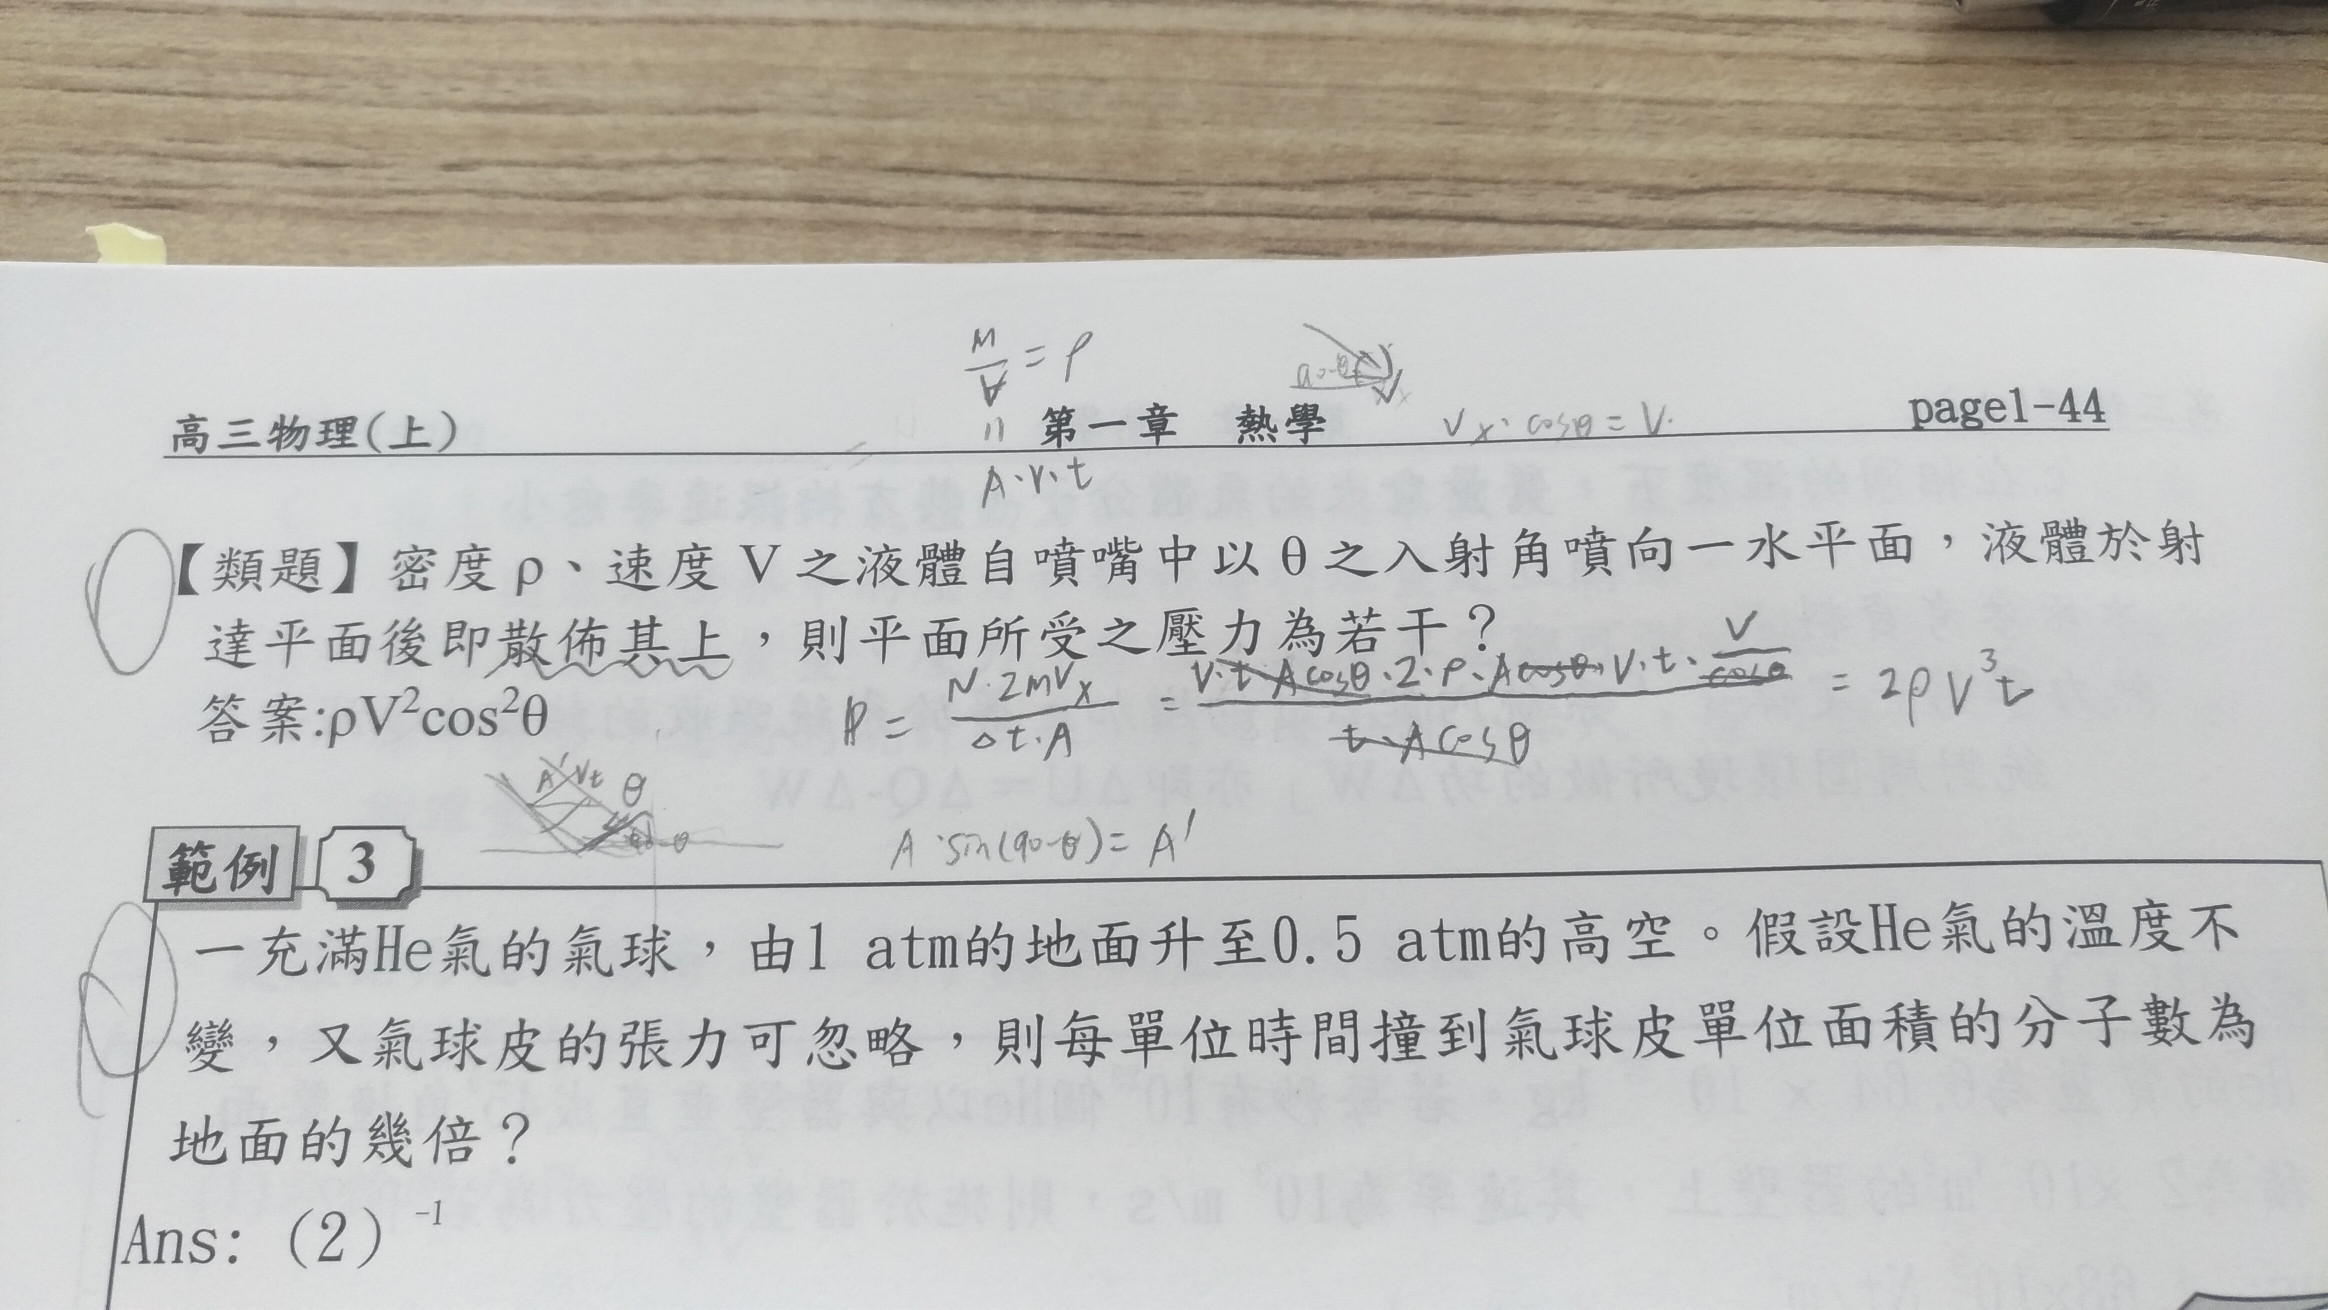 M/V = ρ
90-θ
Vx
高三物理(上)
第一章 熱學
Vx·cosθ = V.
page1-44
=
A·V·t
【類題】密度 ρ、速度 V 之液體自噴嘴中以 θ 之入射角噴向一水平面，液體於射
達平面後即散佈其上，則平面所受之壓力為若干？
答案:ρV²cos²θ
P = N·2mVx / Δt·A = V·t·Acosθ·2·ρ·Acosθ·V·t·V/cosθ / t·Acosθ = 2ρV³t
A' Vt θ
A·sin(90-θ) = A'
範例 3
一充滿He氣的氣球，由1 atm的地面升至0.5 atm的高空。假設He氣的溫度不
變，又氣球皮的張力可忽略，則每單位時間撞到氣球皮單位面積的分子數為
地面的幾倍？
Ans: (2)⁻¹